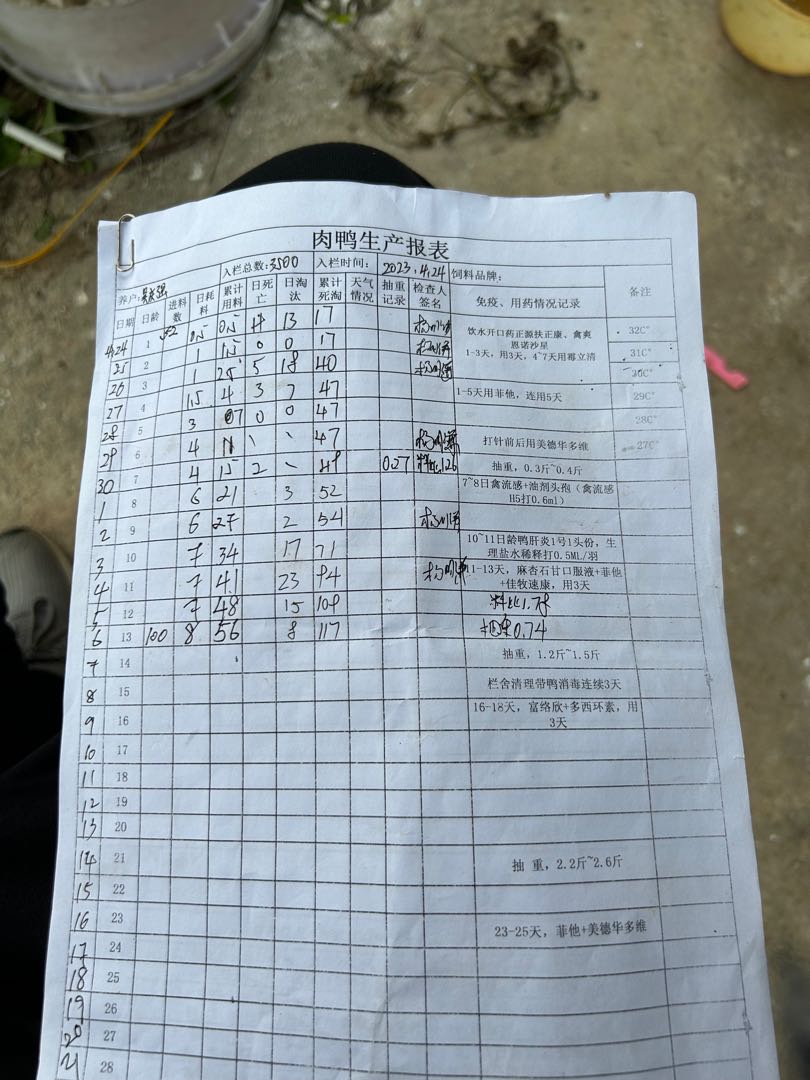 肉鸭生产报表
养户: 入栏总数:3500 入栏时间: 2023.4.24 饲料品牌:
日期 日龄 进料数 日耗料 累计用料 日死亡 日淘汰 累计死淘 天气情况 抽重记录 检查人签名 免疫、用药情况记录 备注
4.24 1 52 0.5 0.5 4 13 17 饮水开口药正源扶正康、禽爽恩诺沙星 32C°
25 2 1 1.5 0 0 17 1-3天，用3天，4~7天用霉立清 31C°
26 3 1 2.5 5 18 40 30C°
27 4 1.5 4 3 7 47 1-5天用菲他，连用5天 29C°
28 5 3 07 0 0 47 28C°
29 6 4 11 \ \ 47 打针前后用美德华多维 27C°
30 7 4 15 2 \ 49 0.27 料比1.26 抽重，0.3斤~0.4斤
1 8 6 21 3 52 7~8日禽流感+油剂头孢（禽流感H5打0.6ml）
2 9 6 27 2 54
3 10 7 34 17 71 10~11日龄鸭肝炎1号1头份，生理盐水稀释打0.5ML/羽
4 11 7 41 23 94 11-13天，麻杏石甘口服液+菲他+佳牧速康，用3天
5 12 7 48 15 109 料比1.78
6 13 100 8 56 8 117 0.74
7 14 抽重，1.2斤~1.5斤
8 15 栏舍清理带鸭消毒连续3天
9 16 16-18天，富络欣+多西环素，用3天
10 17
11 18
12 19
13 20
14 21 抽 重，2.2斤~2.6斤
15 22
16 23 23-25天，菲他+美德华多维
17 24
18 25
19 26
20 27
21 28